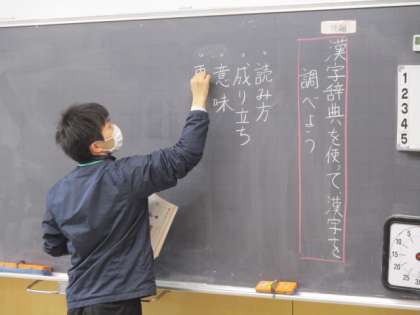 漢字辞典を使って、漢字を
調べよう
・読み方
・成り立ち
・意味
1
2
3
4
5
5
10
15
20
25
30